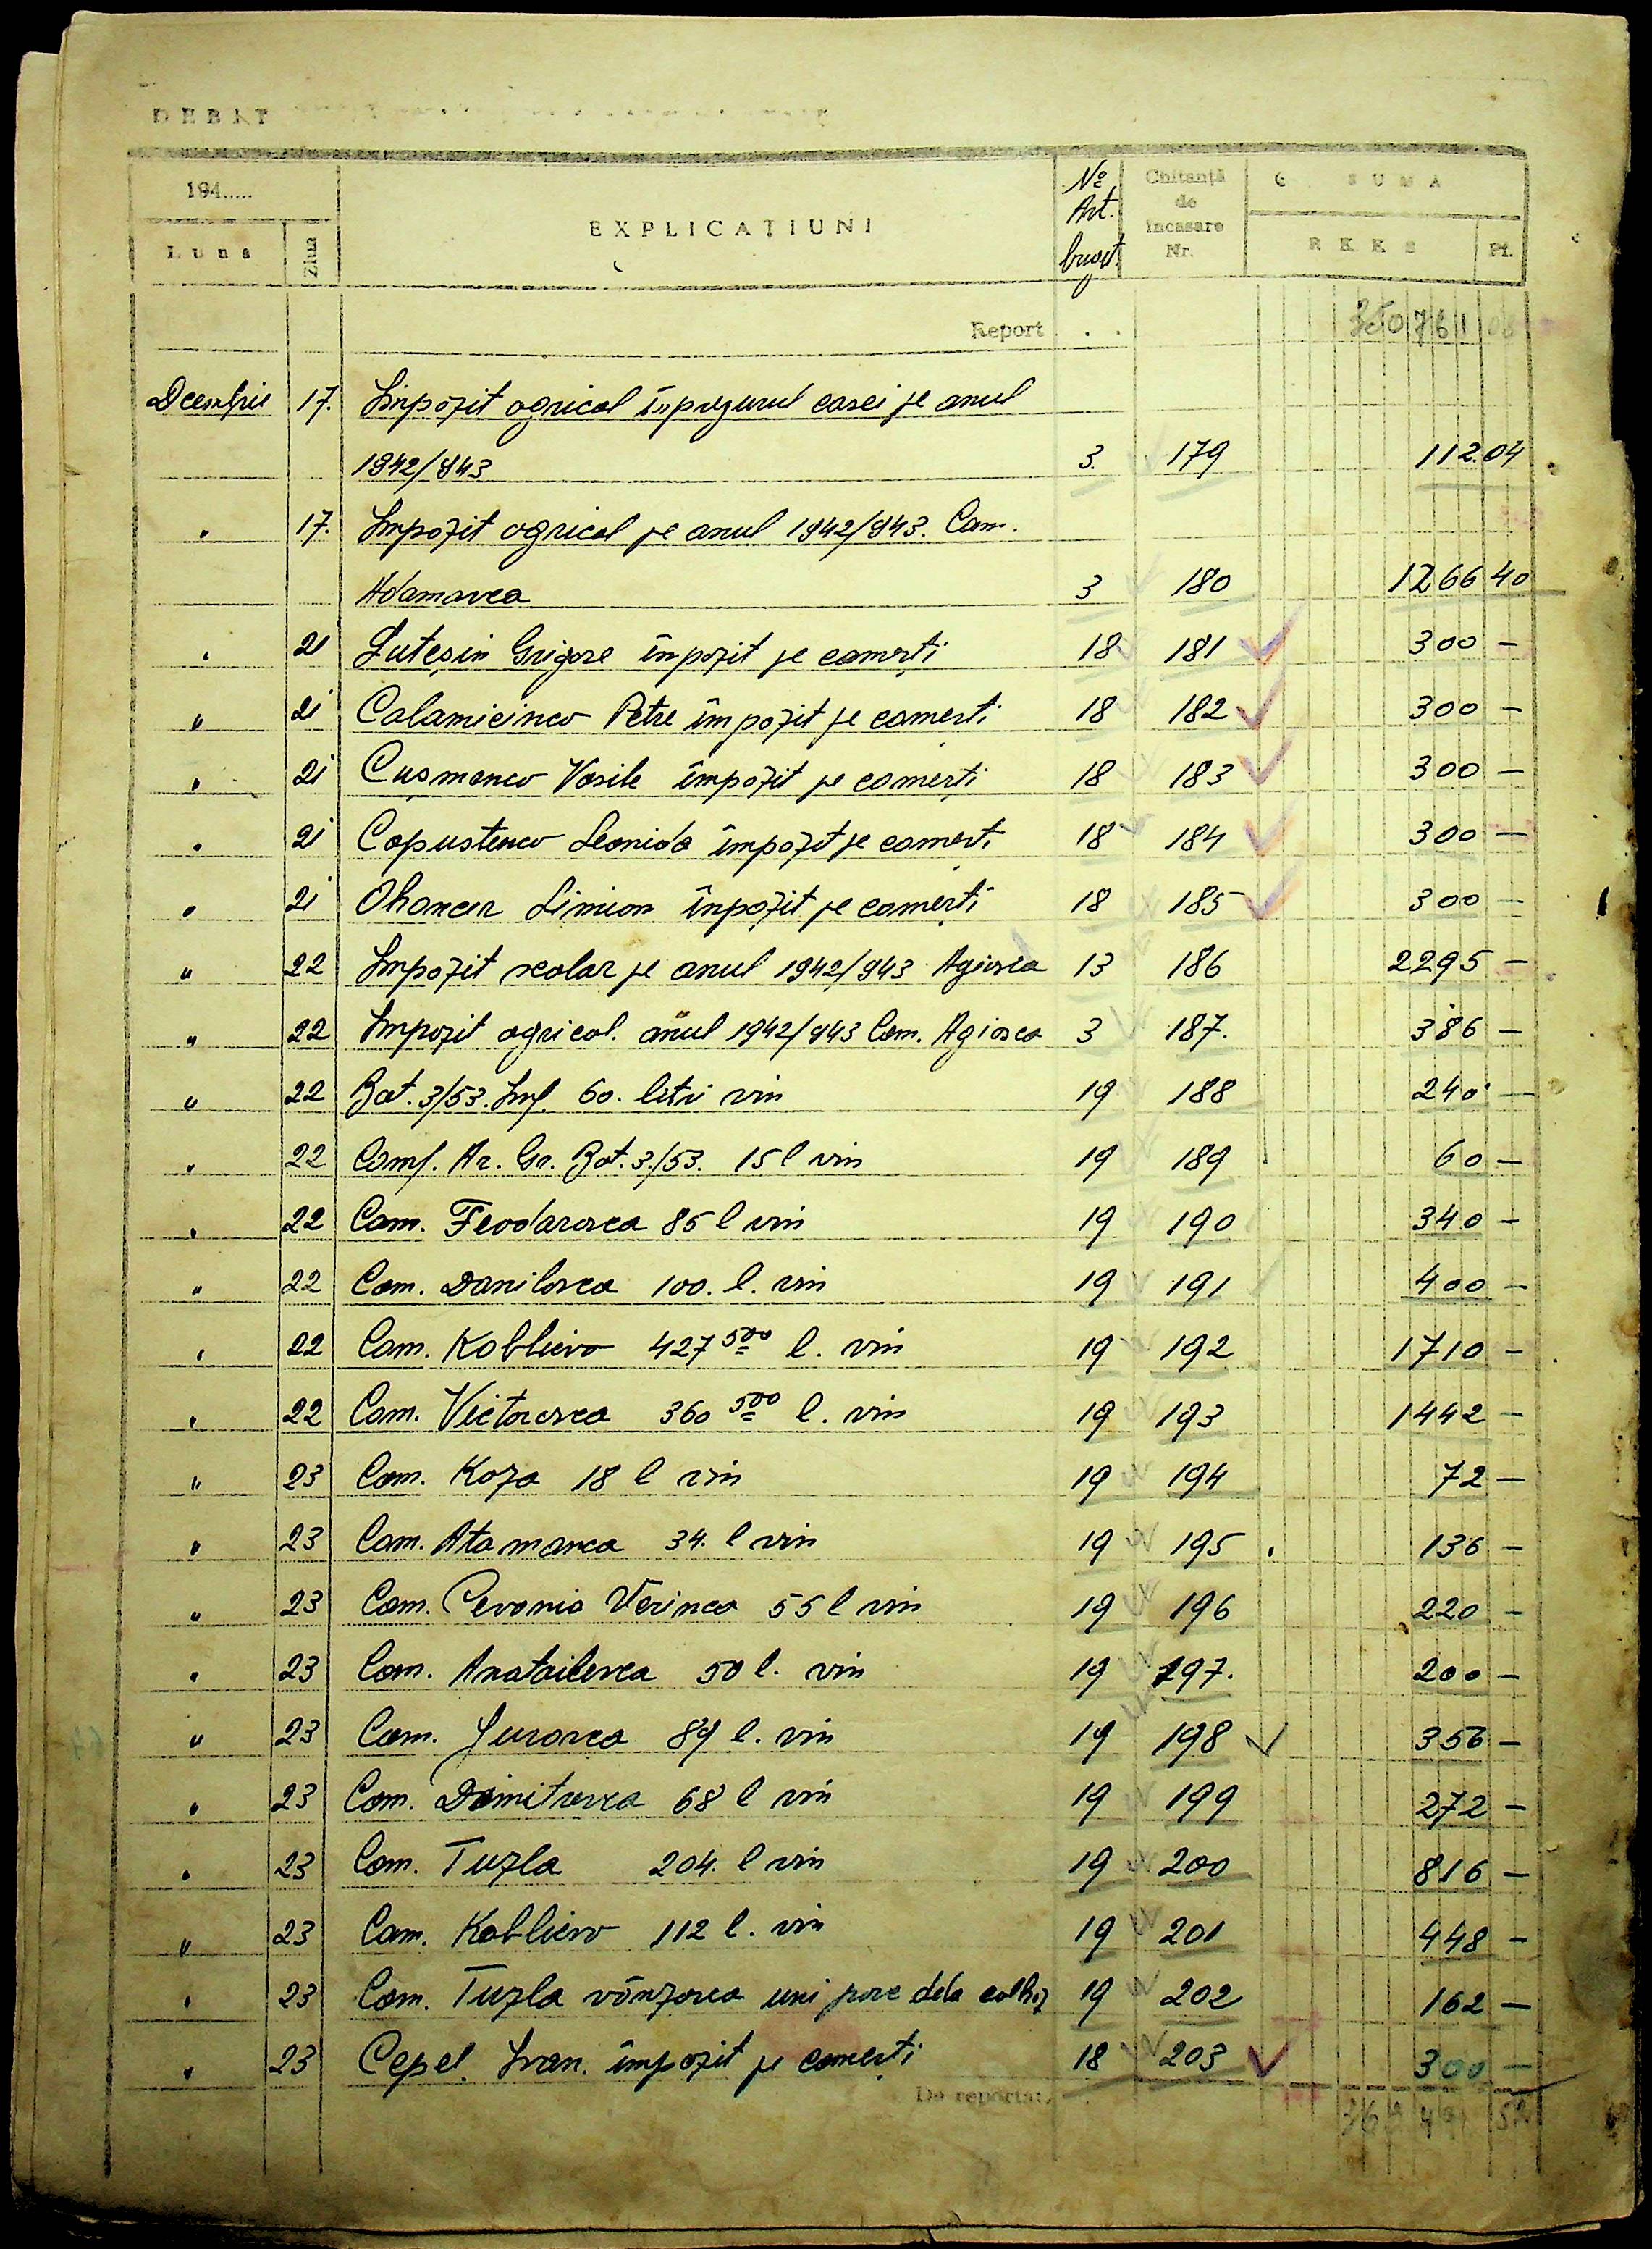 DEBIT
194.....
Luna
Ziua
EXPLICAȚIUNI
No Art. buget.
Chitanță de încasare Nr.
SUMA
RKKS Pf.
Report . . 350761 08
Decembrie 17. Impozit agricol împrejurul casei pe anul
1942/943 3. 179 112.04
" 17. Impozit agricol pe anul 1942/943. Com.
Adamovca 3 180 1266 40
" 21 Luteșin Grigore împozit pe comerți 18 181 300 -
" 21 Calamicinco Petre împozit pe comerti 18 182 300 -
" 21 Cușmenco Vasile împozit pe comerți 18 183 300 -
" 21 Capustenco Leonida împozit pe comerți 18 184 300 -
" 21 Ohancer Simion înpozit pe comerți 18 185 300 -
" 22 Impozit scolar pe anul 1942/943 Agiasca 13 186 2295 -
" 22 Impozit agricol. anul 1942/943 Com. Agiasca 3 187. 386 -
" 22 Bat. 3/53. Inf. 60. litri vin 19 188 240 -
" 22 Comp. Ar. Gr. Bat. 3./53. 15 l vin 19 189 60 -
" 22 Com. Feodarovca 85 l vin 19 190 340 -
" 22 Com. Danilovca 100. l. vin 19 191 400 -
" 22 Com. Koblievo 427 500 l. vin 19 192 1710 -
" 22 Com. Victorovca 360 500 l. vin 19 193 1442 -
" 23 Com. Koza 18 l vin 19 194 72 -
" 23 Com. Atamanca 34. l vin 19 195 136 -
" 23 Com. Cervonia Verinca 55 l vin 19 196 220 -
" 23 Com. Anatailovca 50 l. vin 19 197. 200 -
" 23 Com. Jurovca 89 l. vin 19 198 356 -
" 23 Com. Dimitrovca 68 l vin 19 199 272 -
" 23 Com. Tuzla 204. l vin 19 200 816 -
" 23 Com. Koblievo 112 l. vin 19 201 448 -
" 23 Com. Tuzla vânzarea uni porc dela colhoz 19 202 162 -
" 23 Cepel. Ivan. împozit pe comerți 18 203 300 -
De reportat.